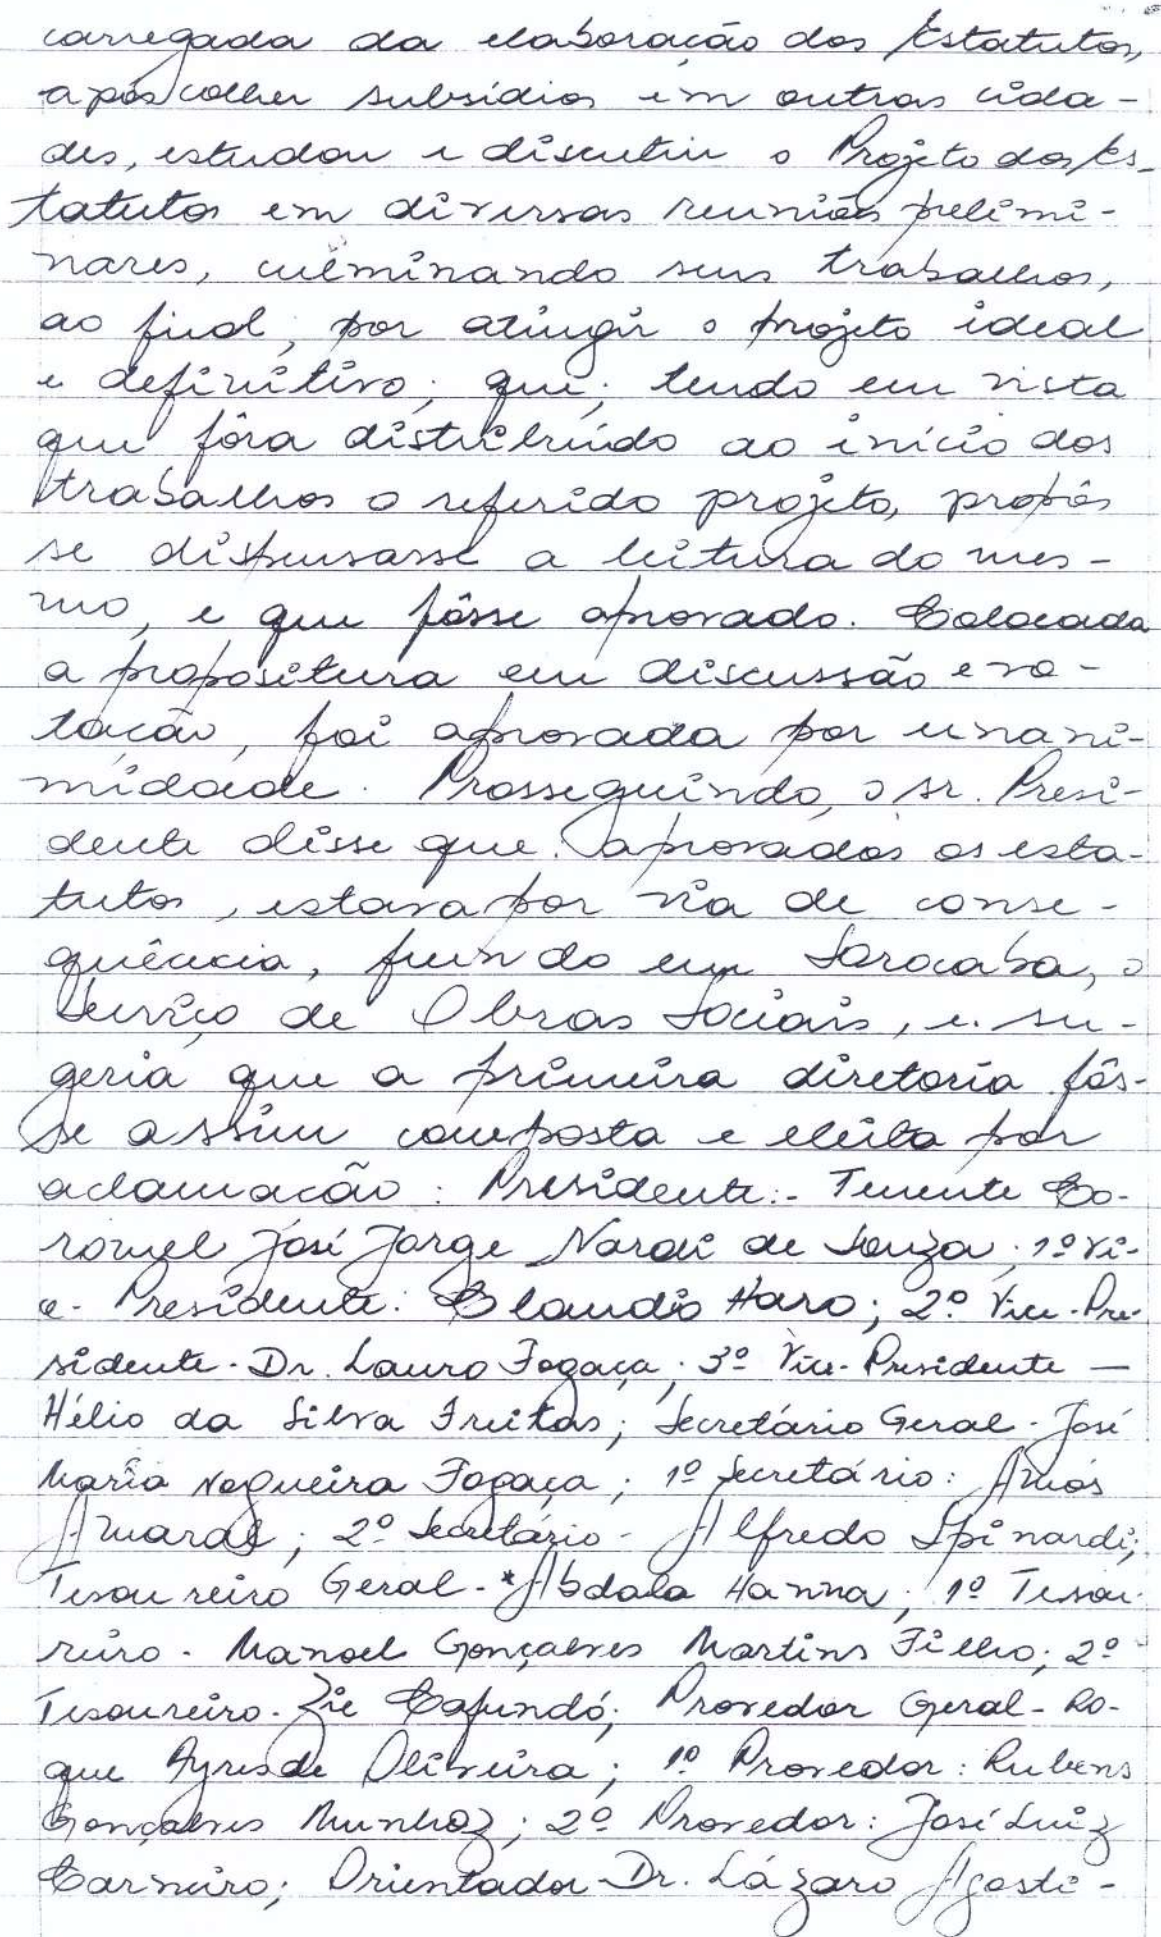 carregada da elaboração dos Estatutos,
após colher subsídios em outras cida-
des, estudou e discutiu o Projeto dos Es-
tatutos em diversas reuniões prelimi-
nares, culminando seus trabalhos,
ao final, por atingir o projeto ideal
e definitivo; que; tendo em vista
que fôra distribuído ao início dos
trabalhos o referido projeto, propôs
se dispensasse a leitura do mes-
mo, e que fôsse aprovado. Colocada
a propositura em discussão e vo-
tação, foi aprovada por unani-
midade. Prosseguindo, o sr. Presi-
dente disse que: aprovados os esta-
tutos, estava por via de conse-
quência, fundado em Sorocaba, o
Serviço de Obras Sociais, e su-
geria que a primeira diretoria fôs-
se assim composta e eleita por
aclamação: Presidente:- Tenente Co-
ronel José Jorge Nardi de Souza; 1º Vi-
ce-Presidente: Claudio Haro; 2º Vice-Pre-
sidente - Dr. Lauro Fogaça; 3º Vice-Presidente —
Hélio da Silva Freitas; Secretário Geral - José
Maria Nogueira Fogaça; 1º Secretário: Amós
Amaral; 2º Secretário - Alfredo Spinardi;
Tesoureiro Geral - *Abdala Hanna; 1º Tesou-
reiro - Manoel Gonçalves Martins Filho; 2º
Tesoureiro - Zie Cafundó; Provedor Geral - Ro-
que Ayres de Oliveira; 1º Provedor: Rubens
Gonçalves Munhoz; 2º Provedor: José Luiz
Carneiro; Orientador - Dr. Lázaro Agosti-